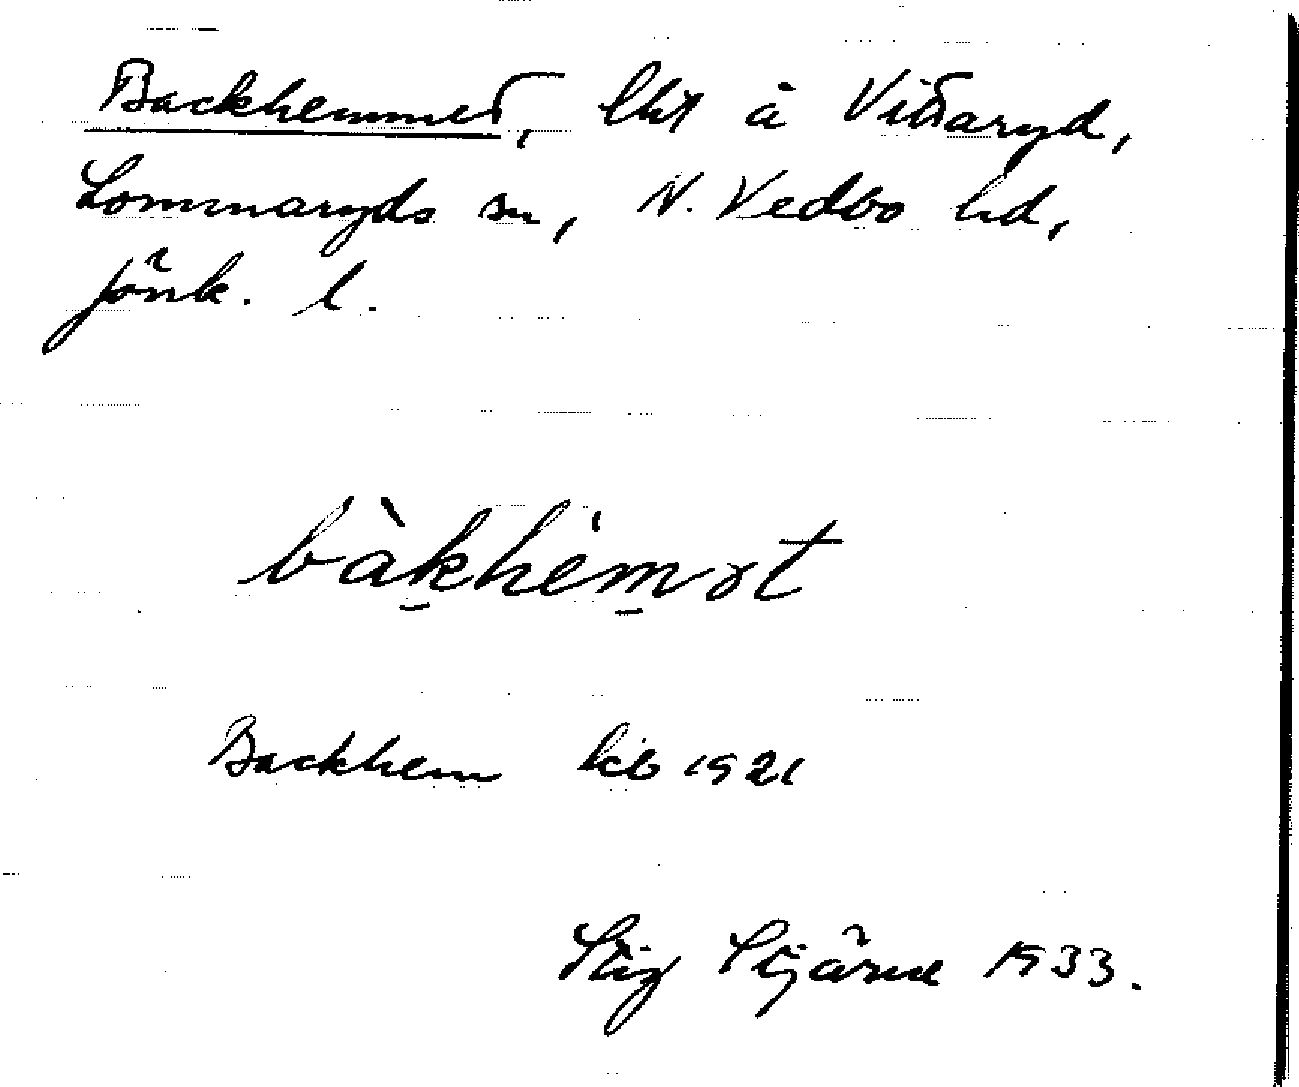 Backhemmet, lht å Vittaryd,
Lommaryds sn, N. Vedbo hd,
Jönk. l.
bàkhémət
Backhem kb 1921
Stig Stjärne 1933.